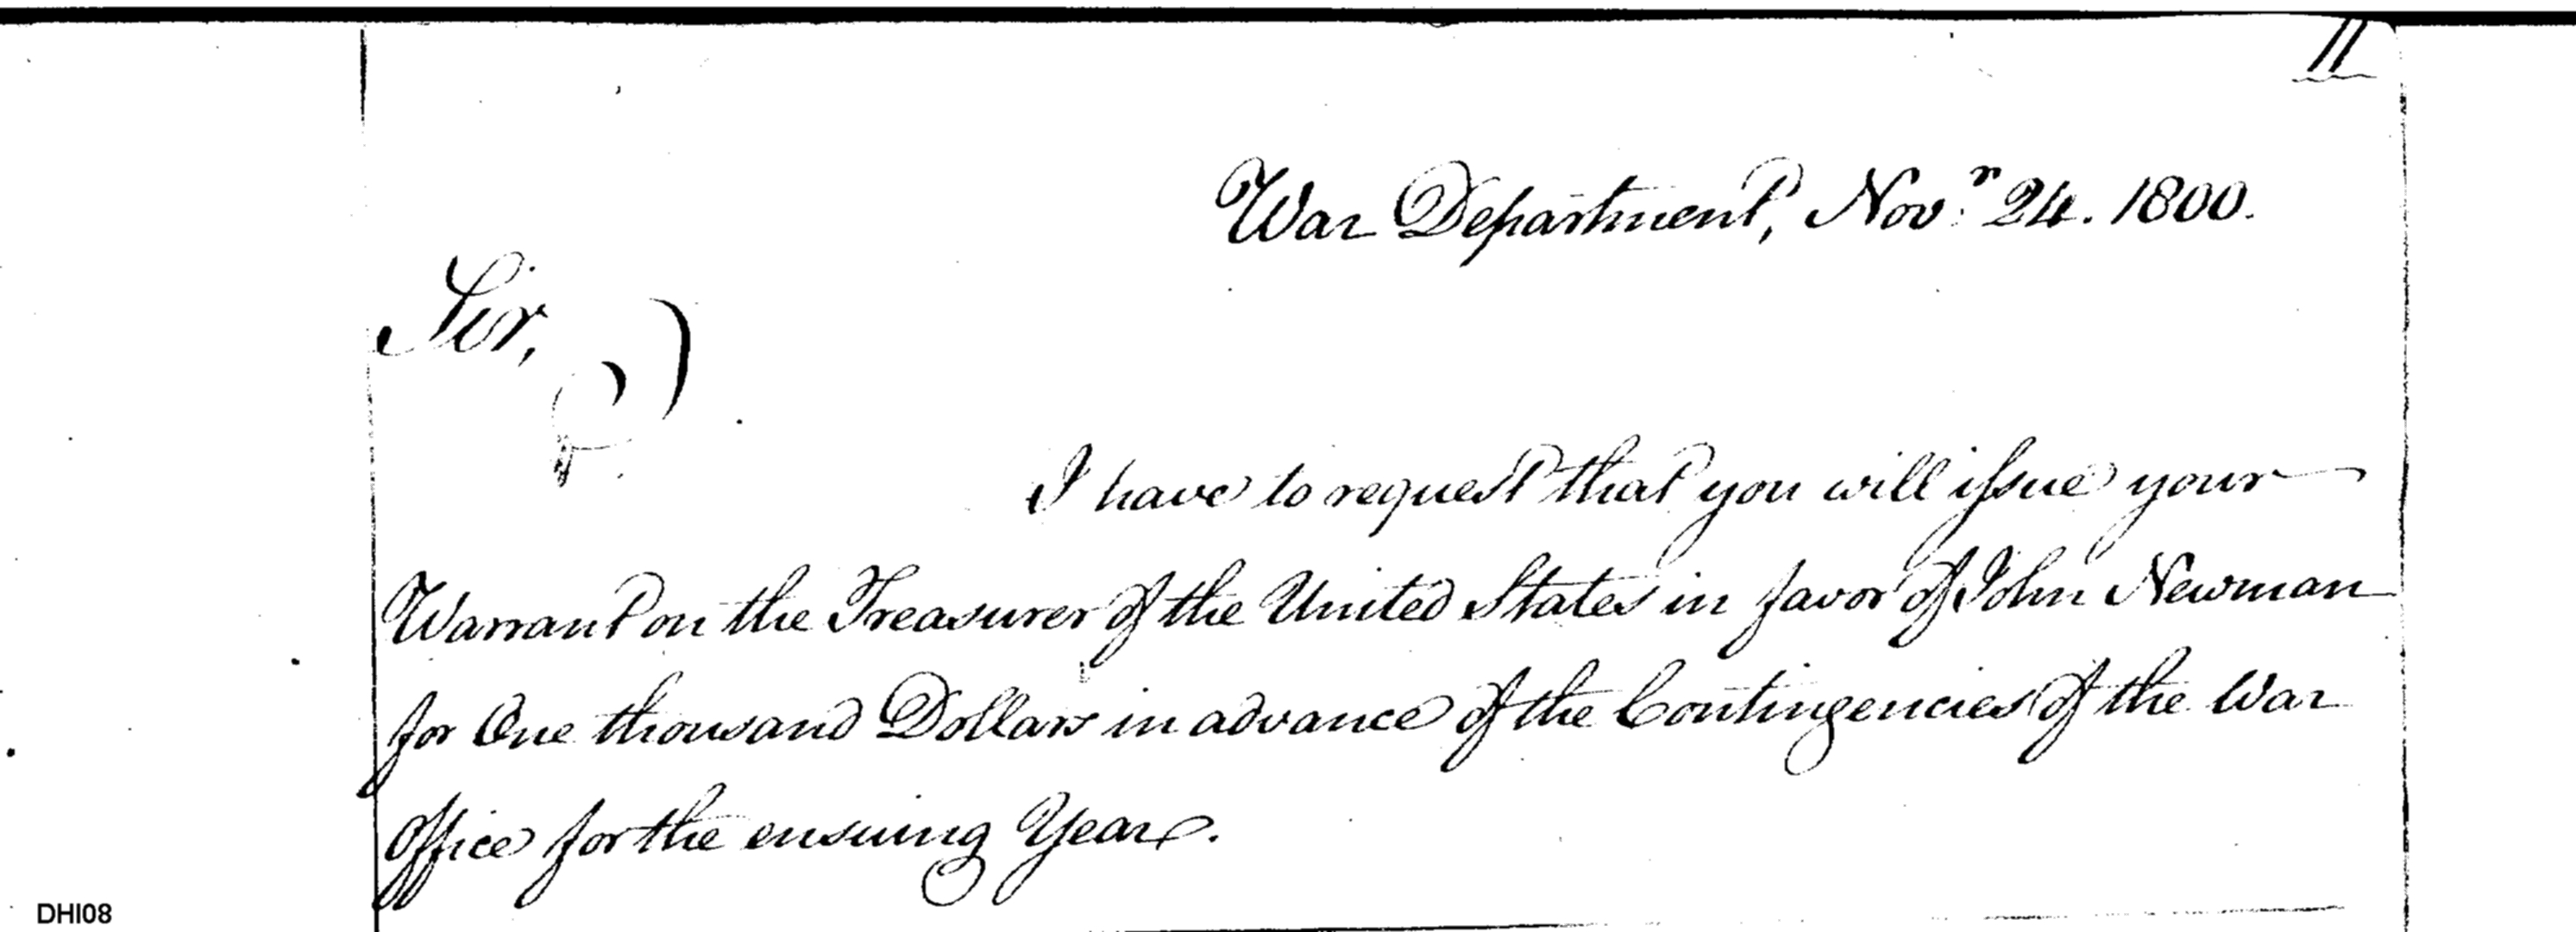 11
War Department, Novr. 24. 1800.
Sir,
I have to request that you will issue your
Warrant on the Treasurer of the United States in favor of John Newman
for One thousand Dollars in advance of the Contingencies of the War
Office for the ensuing Year.
DHI08